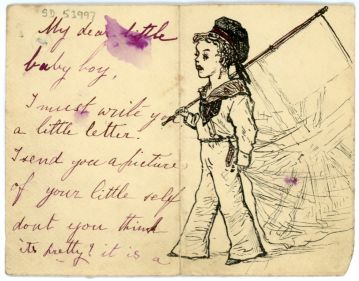 SD 53997
My dear little
baby boy,
I must write you
a little letter.
I send you a picture
of your little self
dont you think
its pretty? it is a